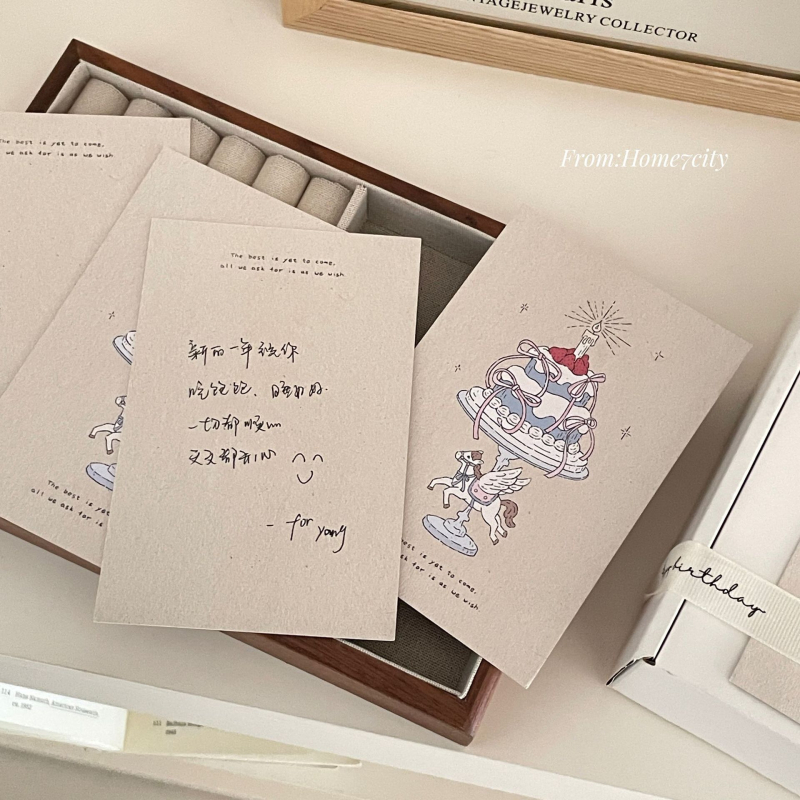 VINTAGEJEWELRY COLLECTOR
From:Home7city
The best is yet to come,
we ask for is as we wish
The best is yet to come,
all we ask for is as we wish
新的一年祝你
吃饱饱、睡好好.
一切都顺心
天天都开心
- for yang
The best is yet to
all we ask for is
best is yet to come,
ask for is as we wish
birthday